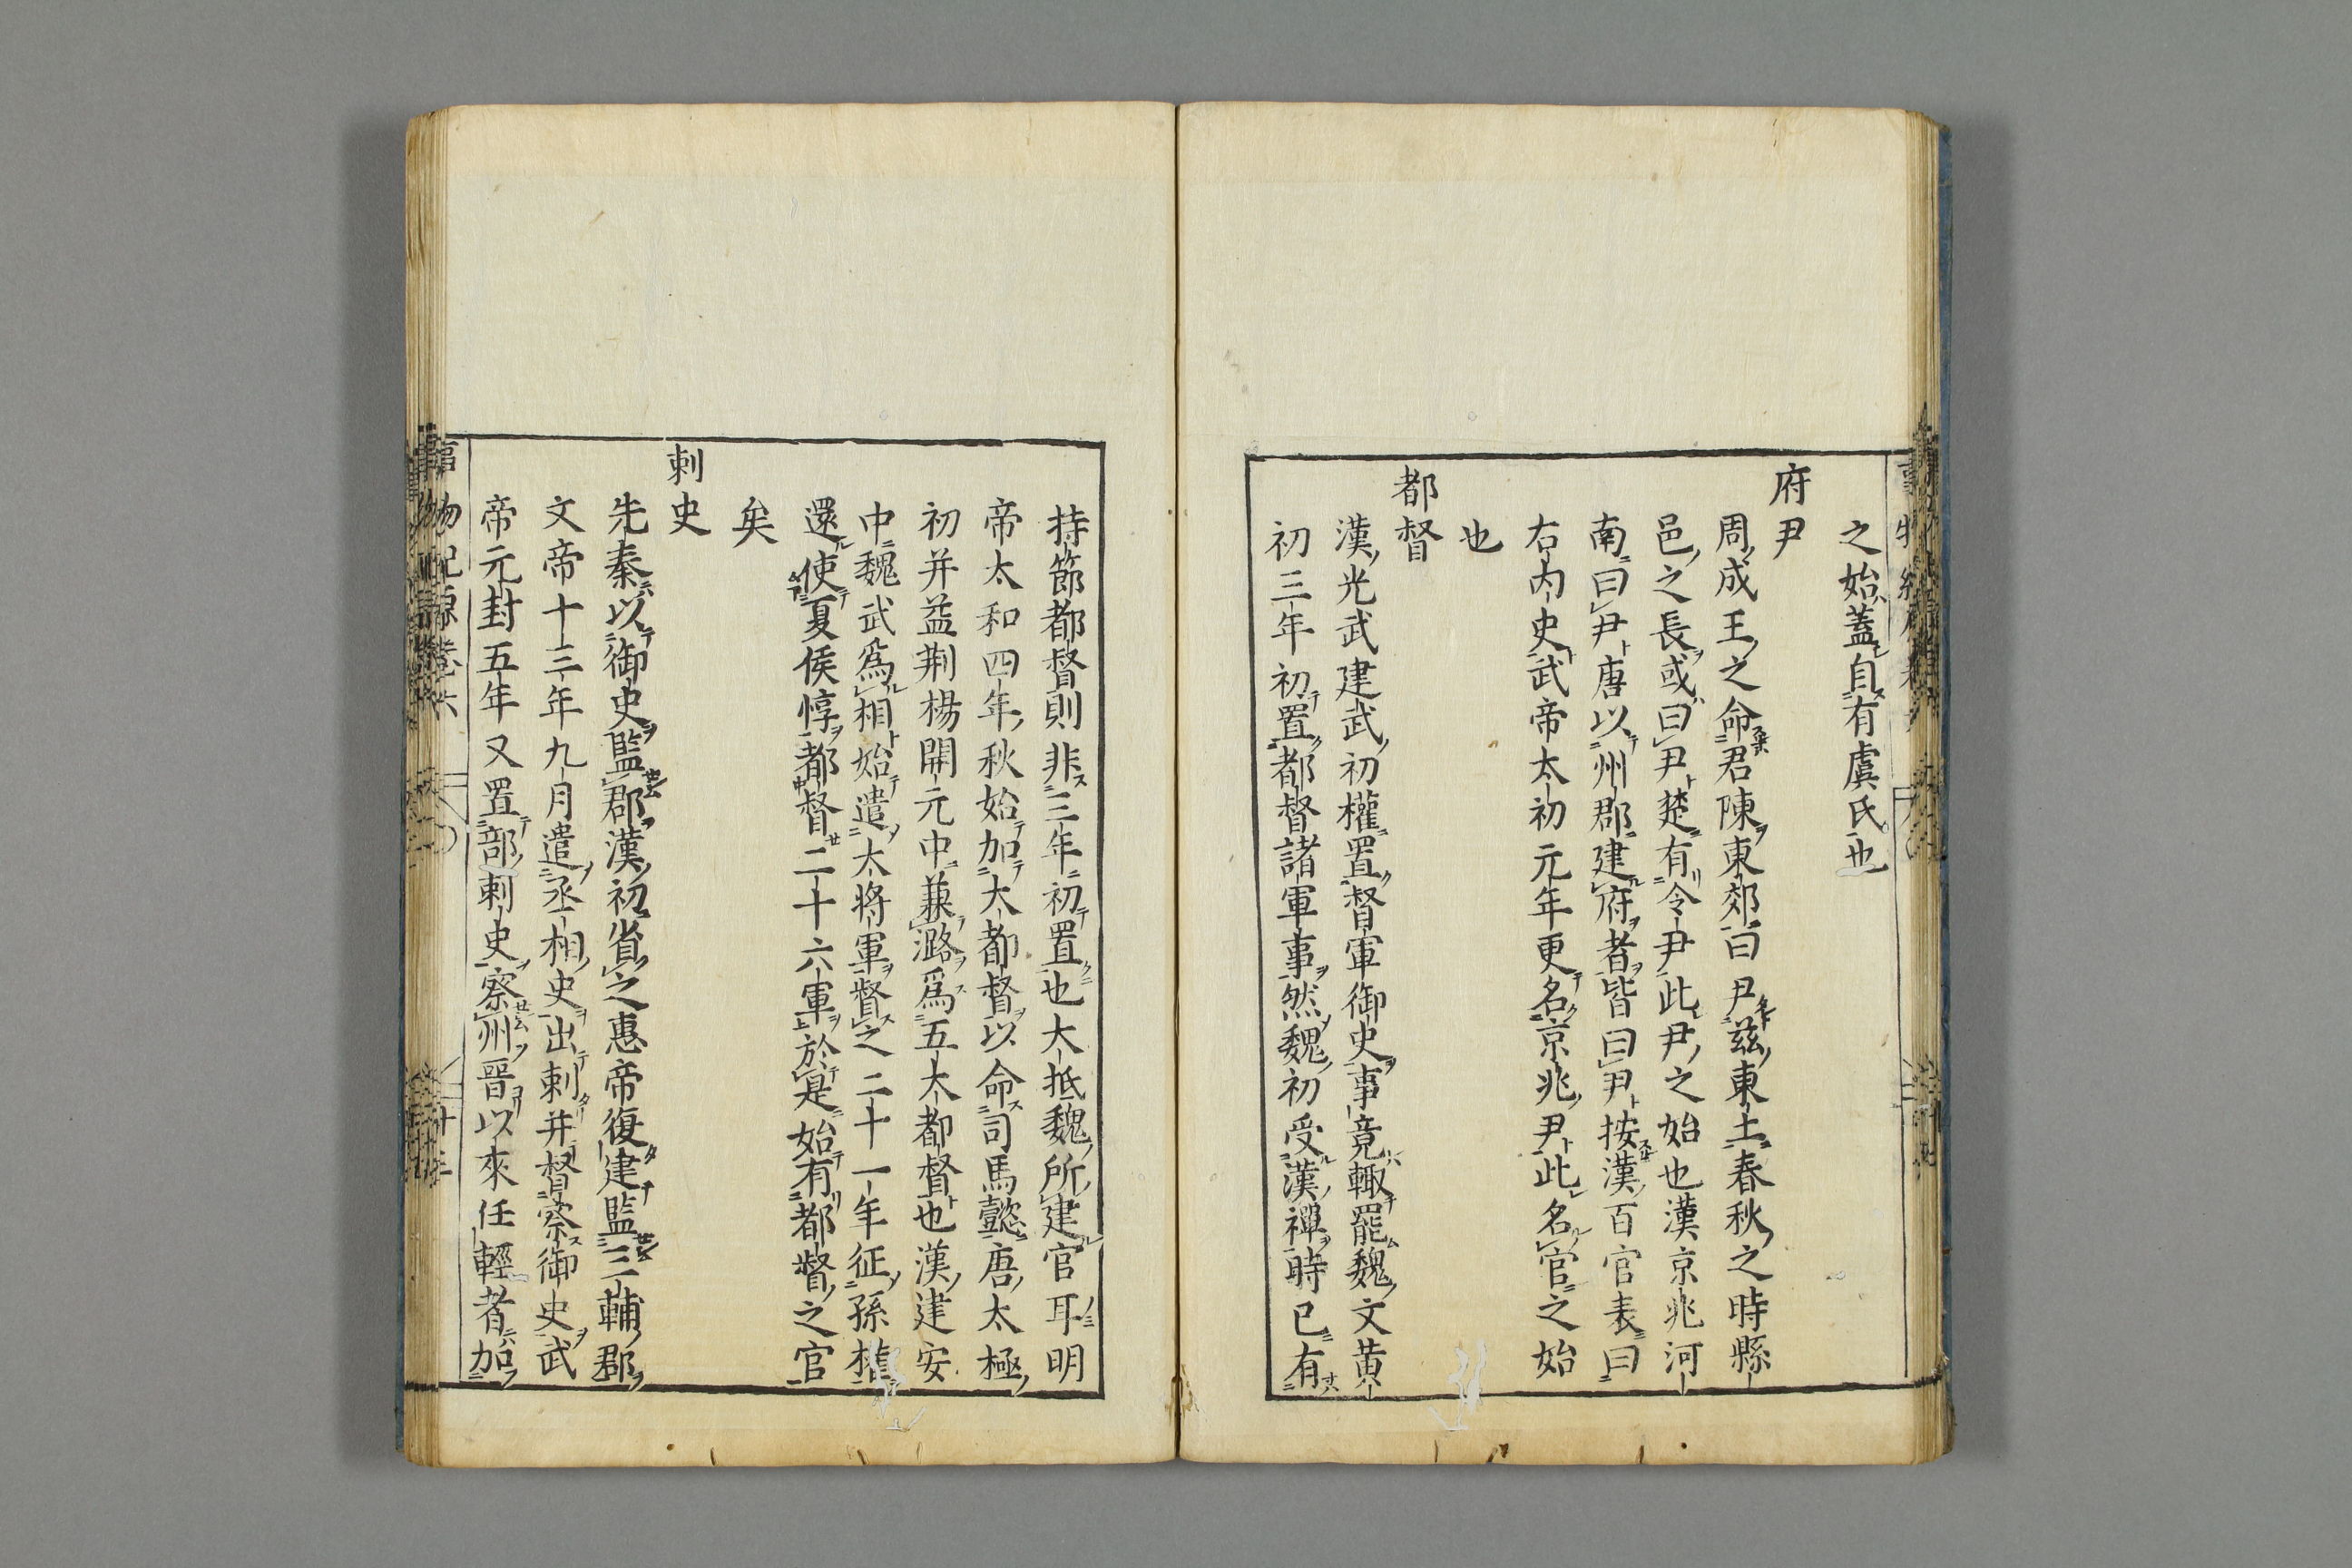 之始蓋自有虞氏也
府尹
周成王之命君陳東郊曰尹茲東土春秋之時縣
邑之長或曰尹楚有令尹此尹之始也漢京兆河
南曰尹唐以州郡建府者皆曰尹按漢百官表曰
右內史武帝太初元年更名京兆尹此名官之始
也
都督
漢光武建武初權置督軍御史事竟輙罷魏文黄
初三年初置都督諸軍事然魏初受漢禪時已有
持節都督則非三年初置也大抵魏所建官耳明
帝太和四年秋始加大都督以命司馬懿唐太極
初并益荆楊開元中兼潞爲五大都督也漢建安
中魏武爲相始遣大將軍督之二十一年征孫權
還使夏侯惇都督二十六軍於是始有都督之官
矣
刺史
先秦以御史監郡漢初省之惠帝復建監三輔郡
文帝十三年九月遣丞相史出刺并督察御史武
帝元封五年又置部刺史察州晉以來任輕者加
事物紀原卷六